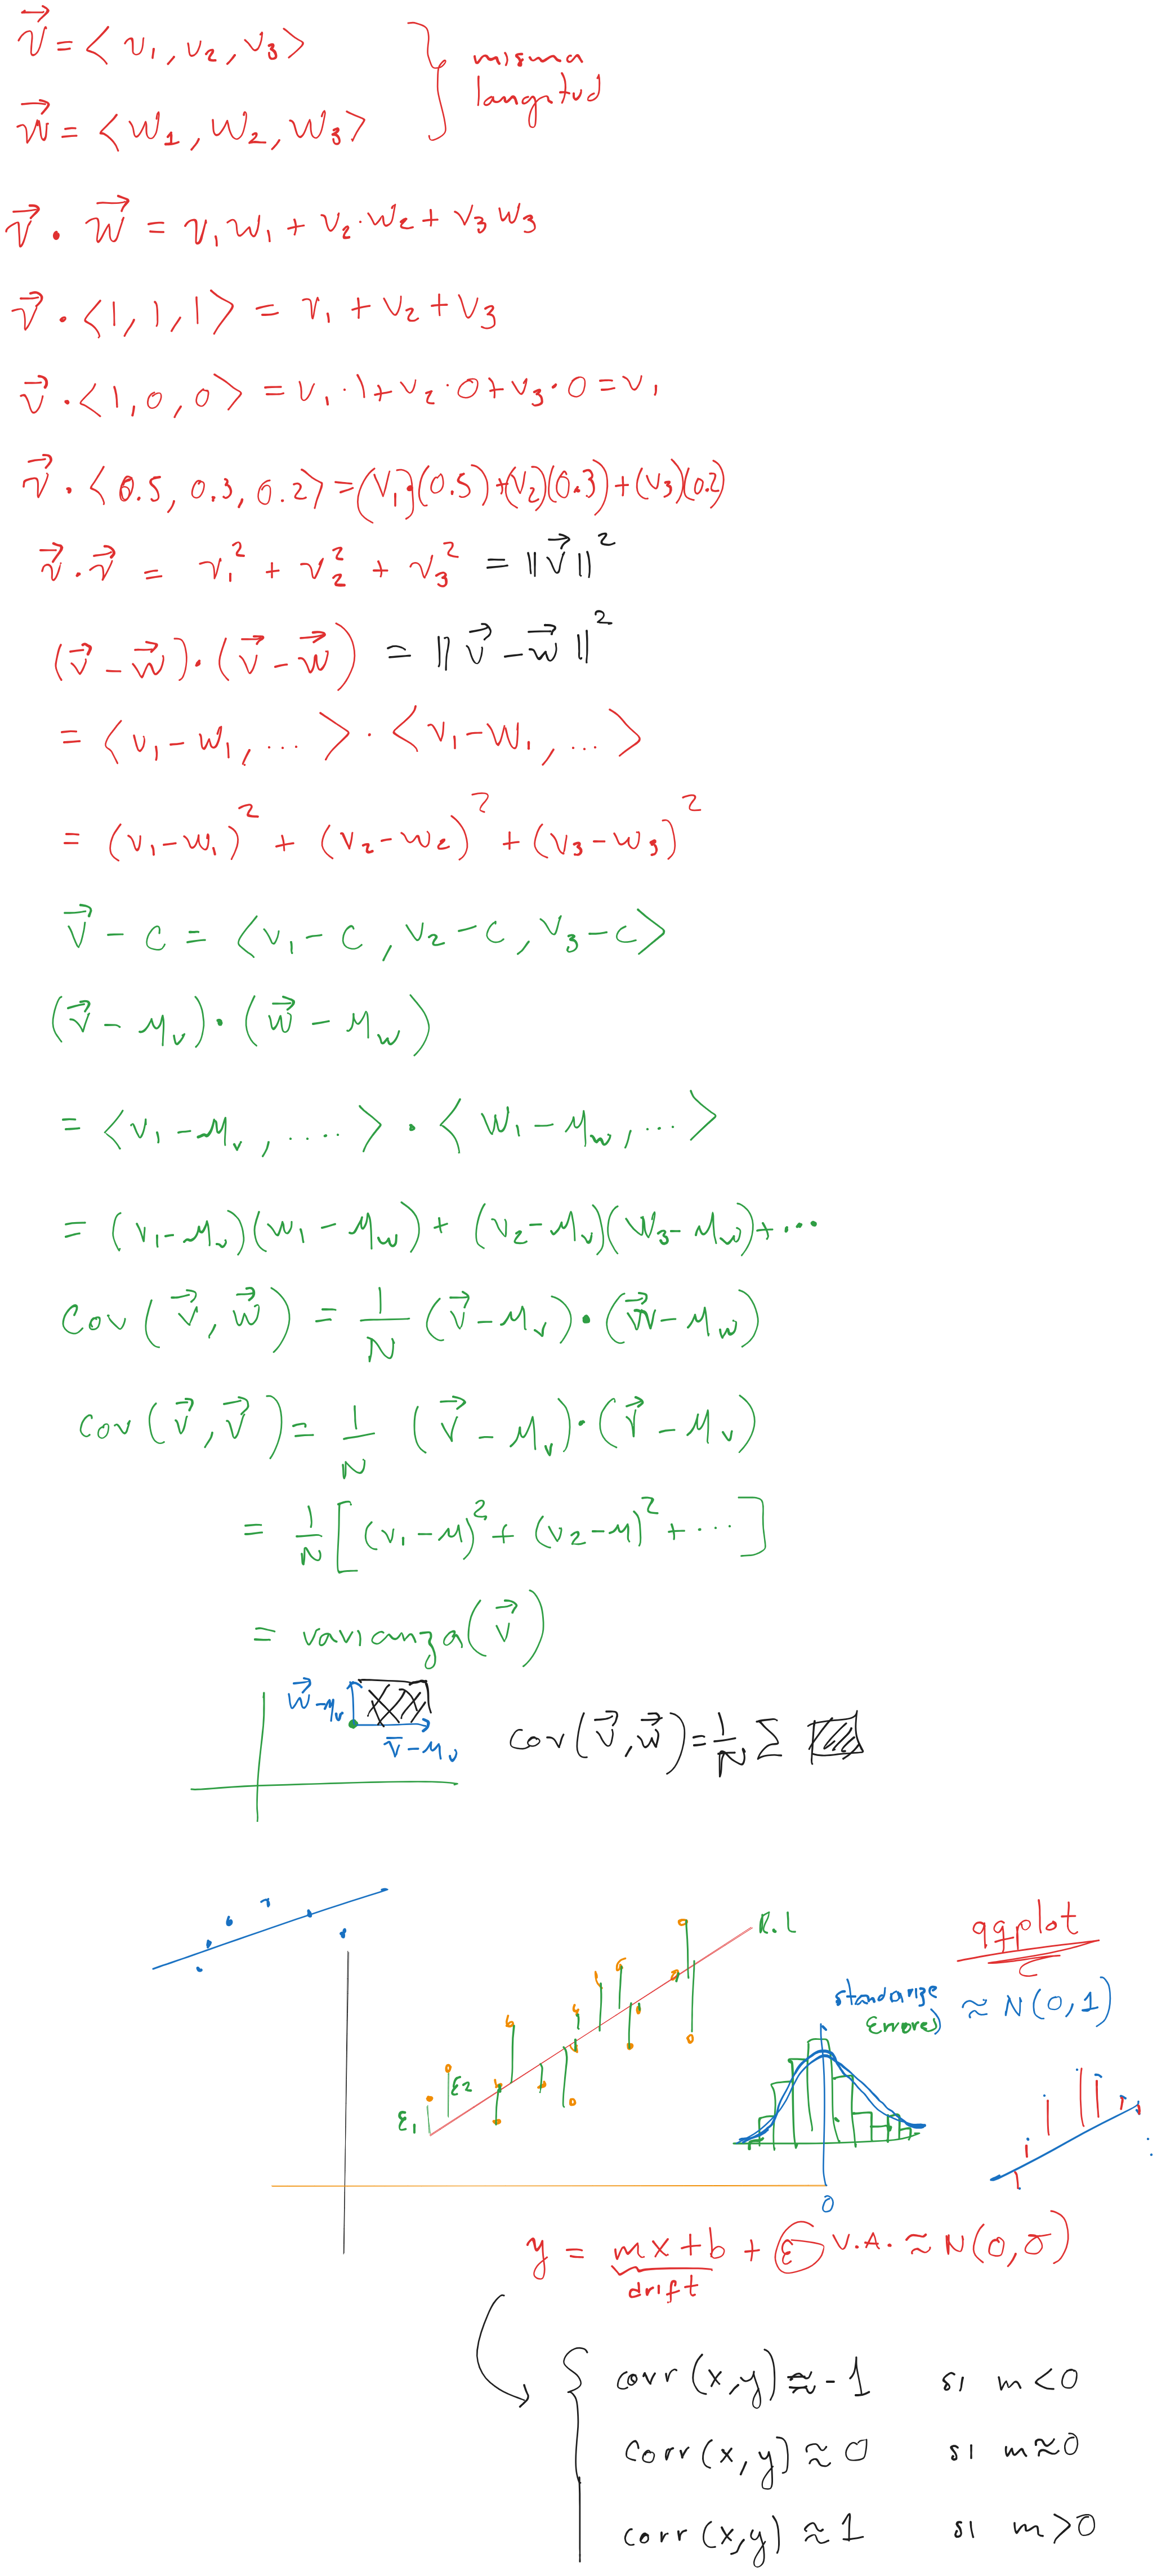 v⃗ = < v₁, v₂, v₃ >
misma
w⃗ = < w₁, w₂, w₃ >
longitud
v⃗ · w⃗ = v₁w₁ + v₂·w₂ + v₃w₃
v⃗ · <1, 1, 1> = v₁ + v₂ + v₃
v⃗ · <1, 0, 0> = v₁·1 + v₂·0 + v₃·0 = v₁
v⃗ · < 0.5, 0.3, 0.2 > = (v₁)·(0.5) + (v₂)(0.3) + (v₃)(0.2)
v⃗ · v⃗ = v₁² + v₂² + v₃² = ‖v⃗‖²
(v⃗ - w⃗) · (v⃗ - w⃗) = ‖v⃗ - w⃗‖²
= < v₁ - w₁, ... > · < v₁ - w₁, ... >
= (v₁ - w₁)² + (v₂ - w₂)² + (v₃ - w₃)²
v⃗ - c = < v₁ - c, v₂ - c, v₃ - c >
(v⃗ - μᵥ) · (w⃗ - μ_w)
= < v₁ - μᵥ, .... > · < w₁ - μ_w, ... >
= (v₁ - μᵥ)(w₁ - μ_w) + (v₂ - μᵥ)(w₃ - μ_w) + ...
Cov(v⃗, w⃗) = 1/N (v⃗ - μᵥ) · (w⃗ - μ_w)
Cov(v⃗, v⃗) = 1/N (v⃗ - μᵥ) · (v⃗ - μᵥ)
= 1/N [(v₁ - μ)² + (v₂ - μ)² + ...]
= varianza(v⃗)
w⃗ - μᵥ
v̄ - μᵥ
Cov(v⃗, w⃗) = 1/N Σ
R.L
qqplot
standarize
Errores
≈ N(0,1)
ε₁
ε₂
0
y = mx + b + ε V.A. ≈ N(0, σ)
drift
corr(x,y) ≈ -1 si m < 0
corr(x,y) ≈ 0 si m ≈ 0
corr(x,y) ≈ 1 si m > 0